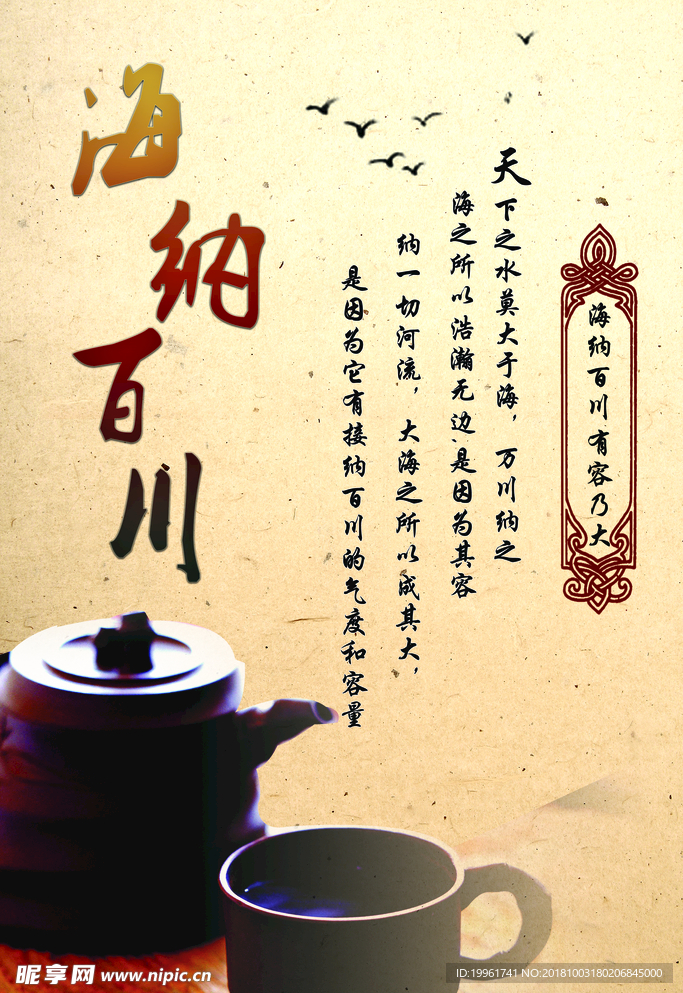 海纳百川
海纳百川有容乃大
天下之水莫大于海，万川纳之
海之所以浩瀚无边，是因为其容
纳一切河流，大海之所以成其大，
是因为它有接纳百川的气度和容量
昵享网 www.nipic.cn
ID:19961741 NO:20181003180206845000